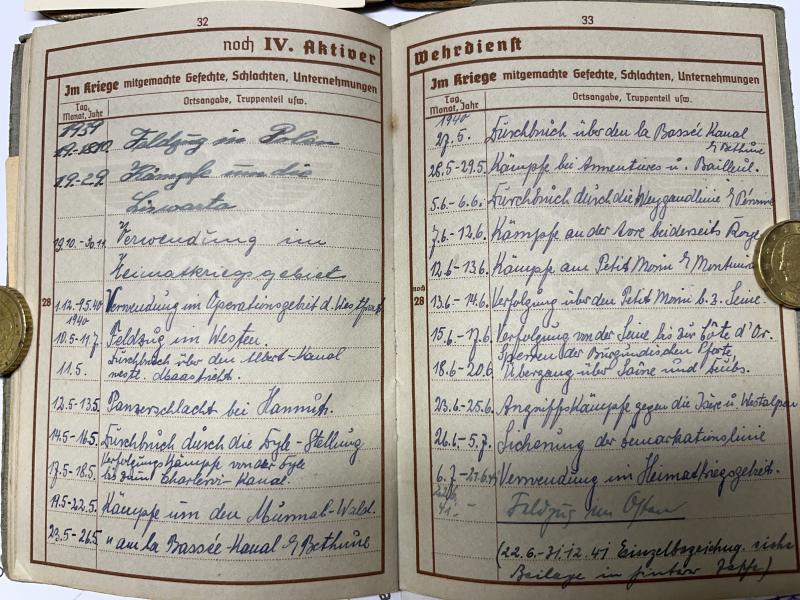 32
noch IV. Aktiver
Im Kriege mitgemachte Gefechte, Schlachten, Unternehmungen
Tag, Monat, Jahr
Ortsangabe, Truppenteil usw.
1939
Feldzug in Polen
19.-2.9. Kämpfe um die
Liswarta
19.10.-30.11. Verwendung im
Heimatkriegsgebiet
28
1.12.-9.5.40 Verwendung im Operationsgebiet d. Westfront
1940
10.5.-4.7. Feldzug im Westen.
11.5. Durchbruch über den Albert-Kanal
westl. Maastricht.
12.5-13.5. Panzerschlacht bei Hannut.
14.5-16.5. Durchbruch durch die Dyle-Stellung
17.5-18.5. Verfolgungskämpfe von der Dyle
bis zum Charleroi-Kanal.
19.5-22.5. Kämpfe um den Mormal-Wald.
23.5-26.5 " am la Bassée-Kanal b/Bethune
33
Wehrdienst
Im Kriege mitgemachte Gefechte, Schlachten, Unternehmungen
Tag, Monat, Jahr
Ortsangabe, Truppenteil usw.
1940
27.5. Durchbruch über den la Bassée Kanal
b/Bethune
28.5-29.5. Kämpfe bei Armentures u. Bailleul.
5.6.-6.6. Durchbruch durch die Weygandlinie b/Péronne
7.6.-12.6. Kämpfe an der Avre beiderseits Roye
12.6-13.6. Kämpfe am Petit Morin b/Montmirail
noch 28
13.6.-14.6. Verfolgung über den Petit Morin b. z. Seine.
15.6.-17.6. Verfolgung von der Seine bis zur Côte d'Or.
Sperren der Burgundischen Pforte,
18.6-20.6 Übergang über Saône und Doubs.
23.6.-25.6. Angriffskämpfe gegen die Isère u. Westalpen
26.6.-5.7. Sicherung der Demarkationslinie
6.7.-21.6.41 Verwendung im Heimatkriegsgebiet.
22.6.
41.- Feldzug im Osten
(22.6.-31.12.41 Einzelbezeichug. siehe
Beilage in hinter )